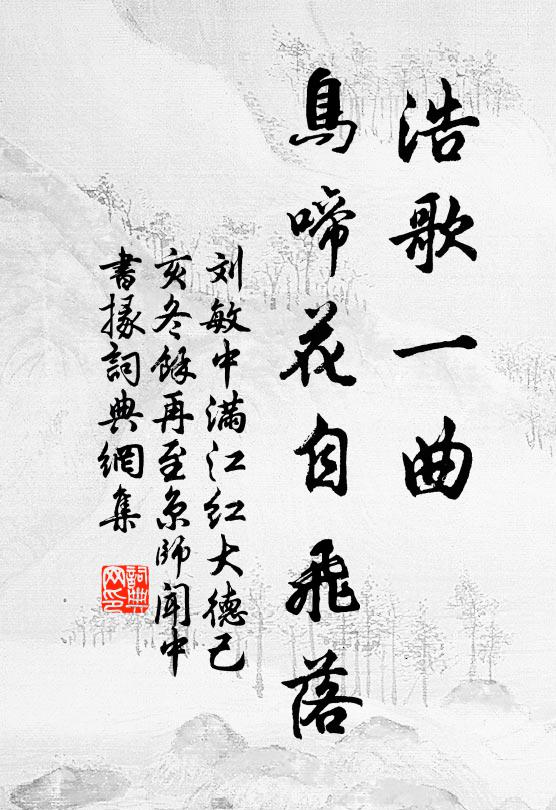 浩歌一曲
鳥啼花自飛落
刘敏中满江红大德己
亥冬餘再至京師闻中
書掾詞典網集
詞典网印